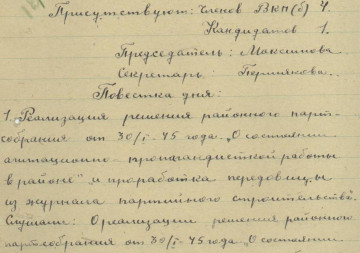 Присутствуют: Членов ВКП(б) 4.
Кандидатов 1.
Председатель: Максимова
Секретарь: Пермякова.
Повестка дня:
1. Реализация решения районного парт-
собрания от 30/I-45 года „О состоянии
агитационно-пропагандисткой работы
в районе" и проработка передовицы
из журнала партийного строительство.
Слушали: О реализации решения районного
партсобрания от 30/I-45 года „О состоянии